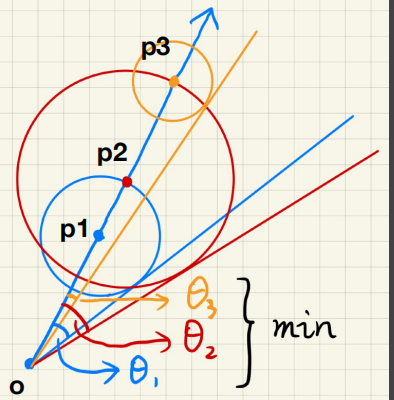 p3
p2
p1
θ₃
θ₂
θ₁
min
o